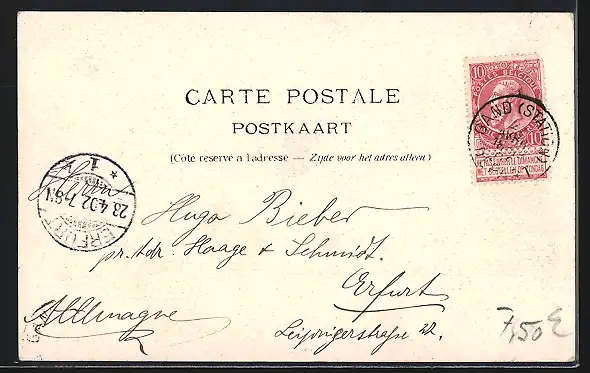 CARTE POSTALE
POSTKAART
(Côté réservé à l'adresse — Zijde voor het adres alleen)
10 10
POSTES BELGIQUE
NE PAS LIVRER LE DIMANCHE
NIET BESTELLEN OP ZONDAG
GAND (STATION)
ERFURT
23.4.02.7-8N.
* 1 *
Herrn
Hugo Bieber
pr. Adr. Haage & Schmidt.
Erfurt
Leipzigerstraße 22.
Allemagne
7,50 €